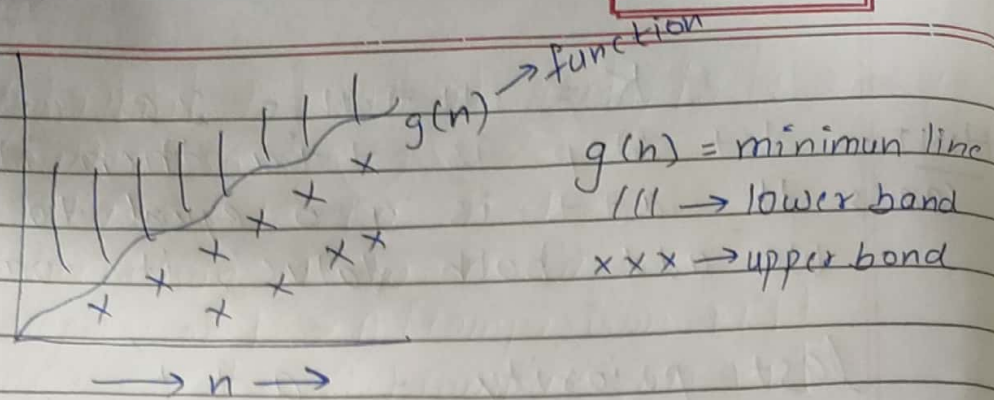 function
g(n)
g(n) = minimun line
||| → lower band
x x x → upper bond
→ n →